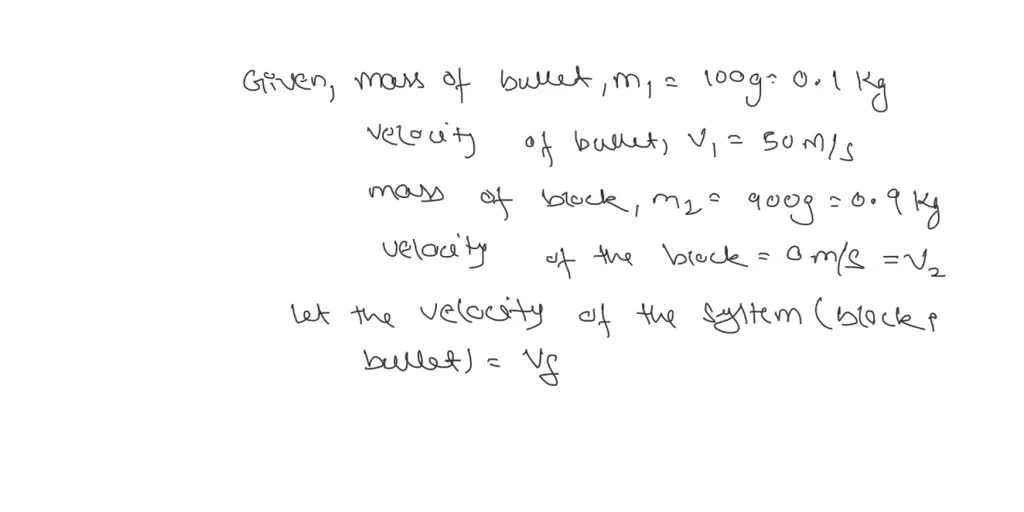 Given, mass of bullet, m₁ = 100g = 0.1 Kg
velocity of bullet, V₁ = 50 m/s
mass of block, m₂ = 900g = 0.9 Kg
velocity of the block = 0 m/s = V₂
let the velocity of the system (block,
bullet) = Vf